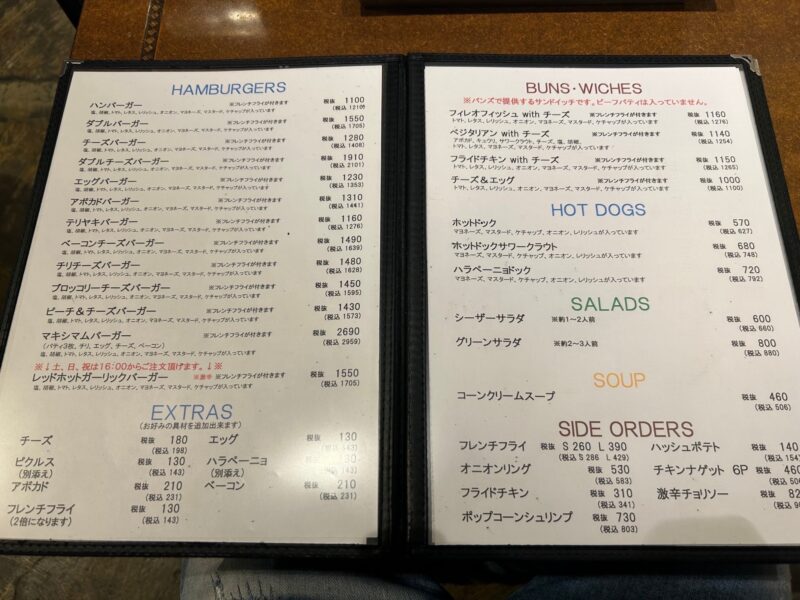 HAMBURGERS
ハンバーガー ※フレンチフライが付きます 税抜 1100
塩、胡椒、トマト、レタス、レリッシュ、オニオン、マヨネーズ、マスタード、ケチャップが入っています (税込 1210)
ダブルバーガー ※フレンチフライが付きます 税抜 1550
塩、胡椒、トマト、レタス、レリッシュ、オニオン、マヨネーズ、マスタード、ケチャップが入っています (税込 1705)
チーズバーガー ※フレンチフライが付きます 税抜 1280
塩、胡椒、トマト、レタス、レリッシュ、オニオン、マヨネーズ、マスタード、ケチャップが入っています (税込 1408)
ダブルチーズバーガー ※フレンチフライが付きます 税抜 1910
塩、胡椒、トマト、レタス、レリッシュ、オニオン、マヨネーズ、マスタード、ケチャップが入っています (税込 2101)
エッグバーガー ※フレンチフライが付きます 税抜 1230
塩、胡椒、トマト、レタス、レリッシュ、オニオン、マヨネーズ、マスタード、ケチャップが入っています (税込 1353)
アボカドバーガー ※フレンチフライが付きます 税抜 1310
塩、胡椒、トマト、レタス、レリッシュ、オニオン、マヨネーズ、マスタード、ケチャップが入っています (税込 1441)
テリヤキバーガー ※フレンチフライが付きます 税抜 1160
塩、胡椒、トマト、レタス、レリッシュ、オニオン、マヨネーズ、マスタード、ケチャップが入っています (税込 1276)
ベーコンチーズバーガー ※フレンチフライが付きます 税抜 1490
塩、胡椒、トマト、レタス、レリッシュ、オニオン、マヨネーズ、マスタード、ケチャップが入っています (税込 1639)
チリチーズバーガー ※フレンチフライが付きます 税抜 1480
塩、胡椒、トマト、レタス、レリッシュ、オニオン、マヨネーズ、マスタード、ケチャップが入っています (税込 1628)
ブロッコリーチーズバーガー ※フレンチフライが付きます 税抜 1450
塩、胡椒、トマト、レタス、レリッシュ、オニオン、マヨネーズ、マスタード、ケチャップが入っています (税込 1595)
ピーチ＆チーズバーガー ※フレンチフライが付きます 税抜 1430
塩、胡椒、トマト、レタス、レリッシュ、オニオン、マヨネーズ、マスタード、ケチャップが入っています (税込 1573)
マキシマムバーガー ※フレンチフライが付きます 税抜 2690
(パティ3枚、チリ、エッグ、チーズ、ベーコン) (税込 2959)
塩、胡椒、トマト、レタス、レリッシュ、オニオン、マヨネーズ、マスタード、ケチャップが入っています
※↓土、日、祝は16:00からご注文頂けます。↓※
レッドホットガーリックバーガー ※激辛 ※フレンチフライが付きます 税抜 1550
塩、胡椒、トマト、レタス、レリッシュ、オニオン、マヨネーズ、マスタード、ケチャップが入っています (税込 1705)
EXTRAS
(お好みの具材を追加出来ます)
チーズ 税抜 180 エッグ 税抜 130
(税込 198) (税込 143)
ピクルス 税抜 130 ハラペーニョ 税抜 130
(別添え) (税込 143) (別添え) (税込 143)
アボカド 税抜 210 ベーコン 税抜 210
(税込 231) (税込 231)
フレンチフライ 税抜 130
(2倍になります) (税込 143)
BUNS・WICHES
※バンズで提供するサンドイッチです。ビーフパティは入っていません。
フィレオフィッシュ with チーズ ※フレンチフライが付きます 税抜 1160
トマト、レタス、レリッシュ、オニオン、マヨネーズ、マスタード、ケチャップが入っています (税込 1276)
ベジタリアン with チーズ ※フレンチフライが付きます 税抜 1140
アボカド、キュウリ、サワークラウト、チーズ、塩、胡椒、 (税込 1254)
トマト、レタス、レリッシュ、オニオン、マヨネーズ、マスタード、ケチャップが入っています
フライドチキン with チーズ ※フレンチフライが付きます 税抜 1150
トマト、レタス、レリッシュ、オニオン、マヨネーズ、マスタード、ケチャップが入っています (税込 1265)
チーズ＆エッグ ※フレンチフライが付きます 税抜 1000
トマト、レタス、レリッシュ、オニオン、マヨネーズ、マスタード、ケチャップが入っています (税込 1100)
HOT DOGS
ホットドック 税抜 570
マヨネーズ、マスタード、ケチャップ、オニオン、レリッシュが入っています (税込 627)
ホットドックサワークラウト 税抜 680
マヨネーズ、マスタード、ケチャップ、オニオン、レリッシュが入っています (税込 748)
ハラペーニョドック 税抜 720
マヨネーズ、マスタード、ケチャップ、オニオン、レリッシュが入っています (税込 792)
SALADS
シーザーサラダ ※約1～2人前 税抜 600
(税込 660)
グリーンサラダ ※約2～3人前 税抜 800
(税込 880)
SOUP
コーンクリームスープ 税抜 460
(税込 506)
SIDE ORDERS
フレンチフライ 税抜 S 260 L 390 ハッシュポテト 税抜 140
(税込 S 286 L 429) (税込 154
オニオンリング 税抜 530 チキンナゲット 6P 税抜 460
(税込 583) (税込 506
フライドチキン 税抜 310 激辛チョリソー 税抜 82
(税込 341) (税込 9
ポップコーンシュリンプ 税抜 730
(税込 803)